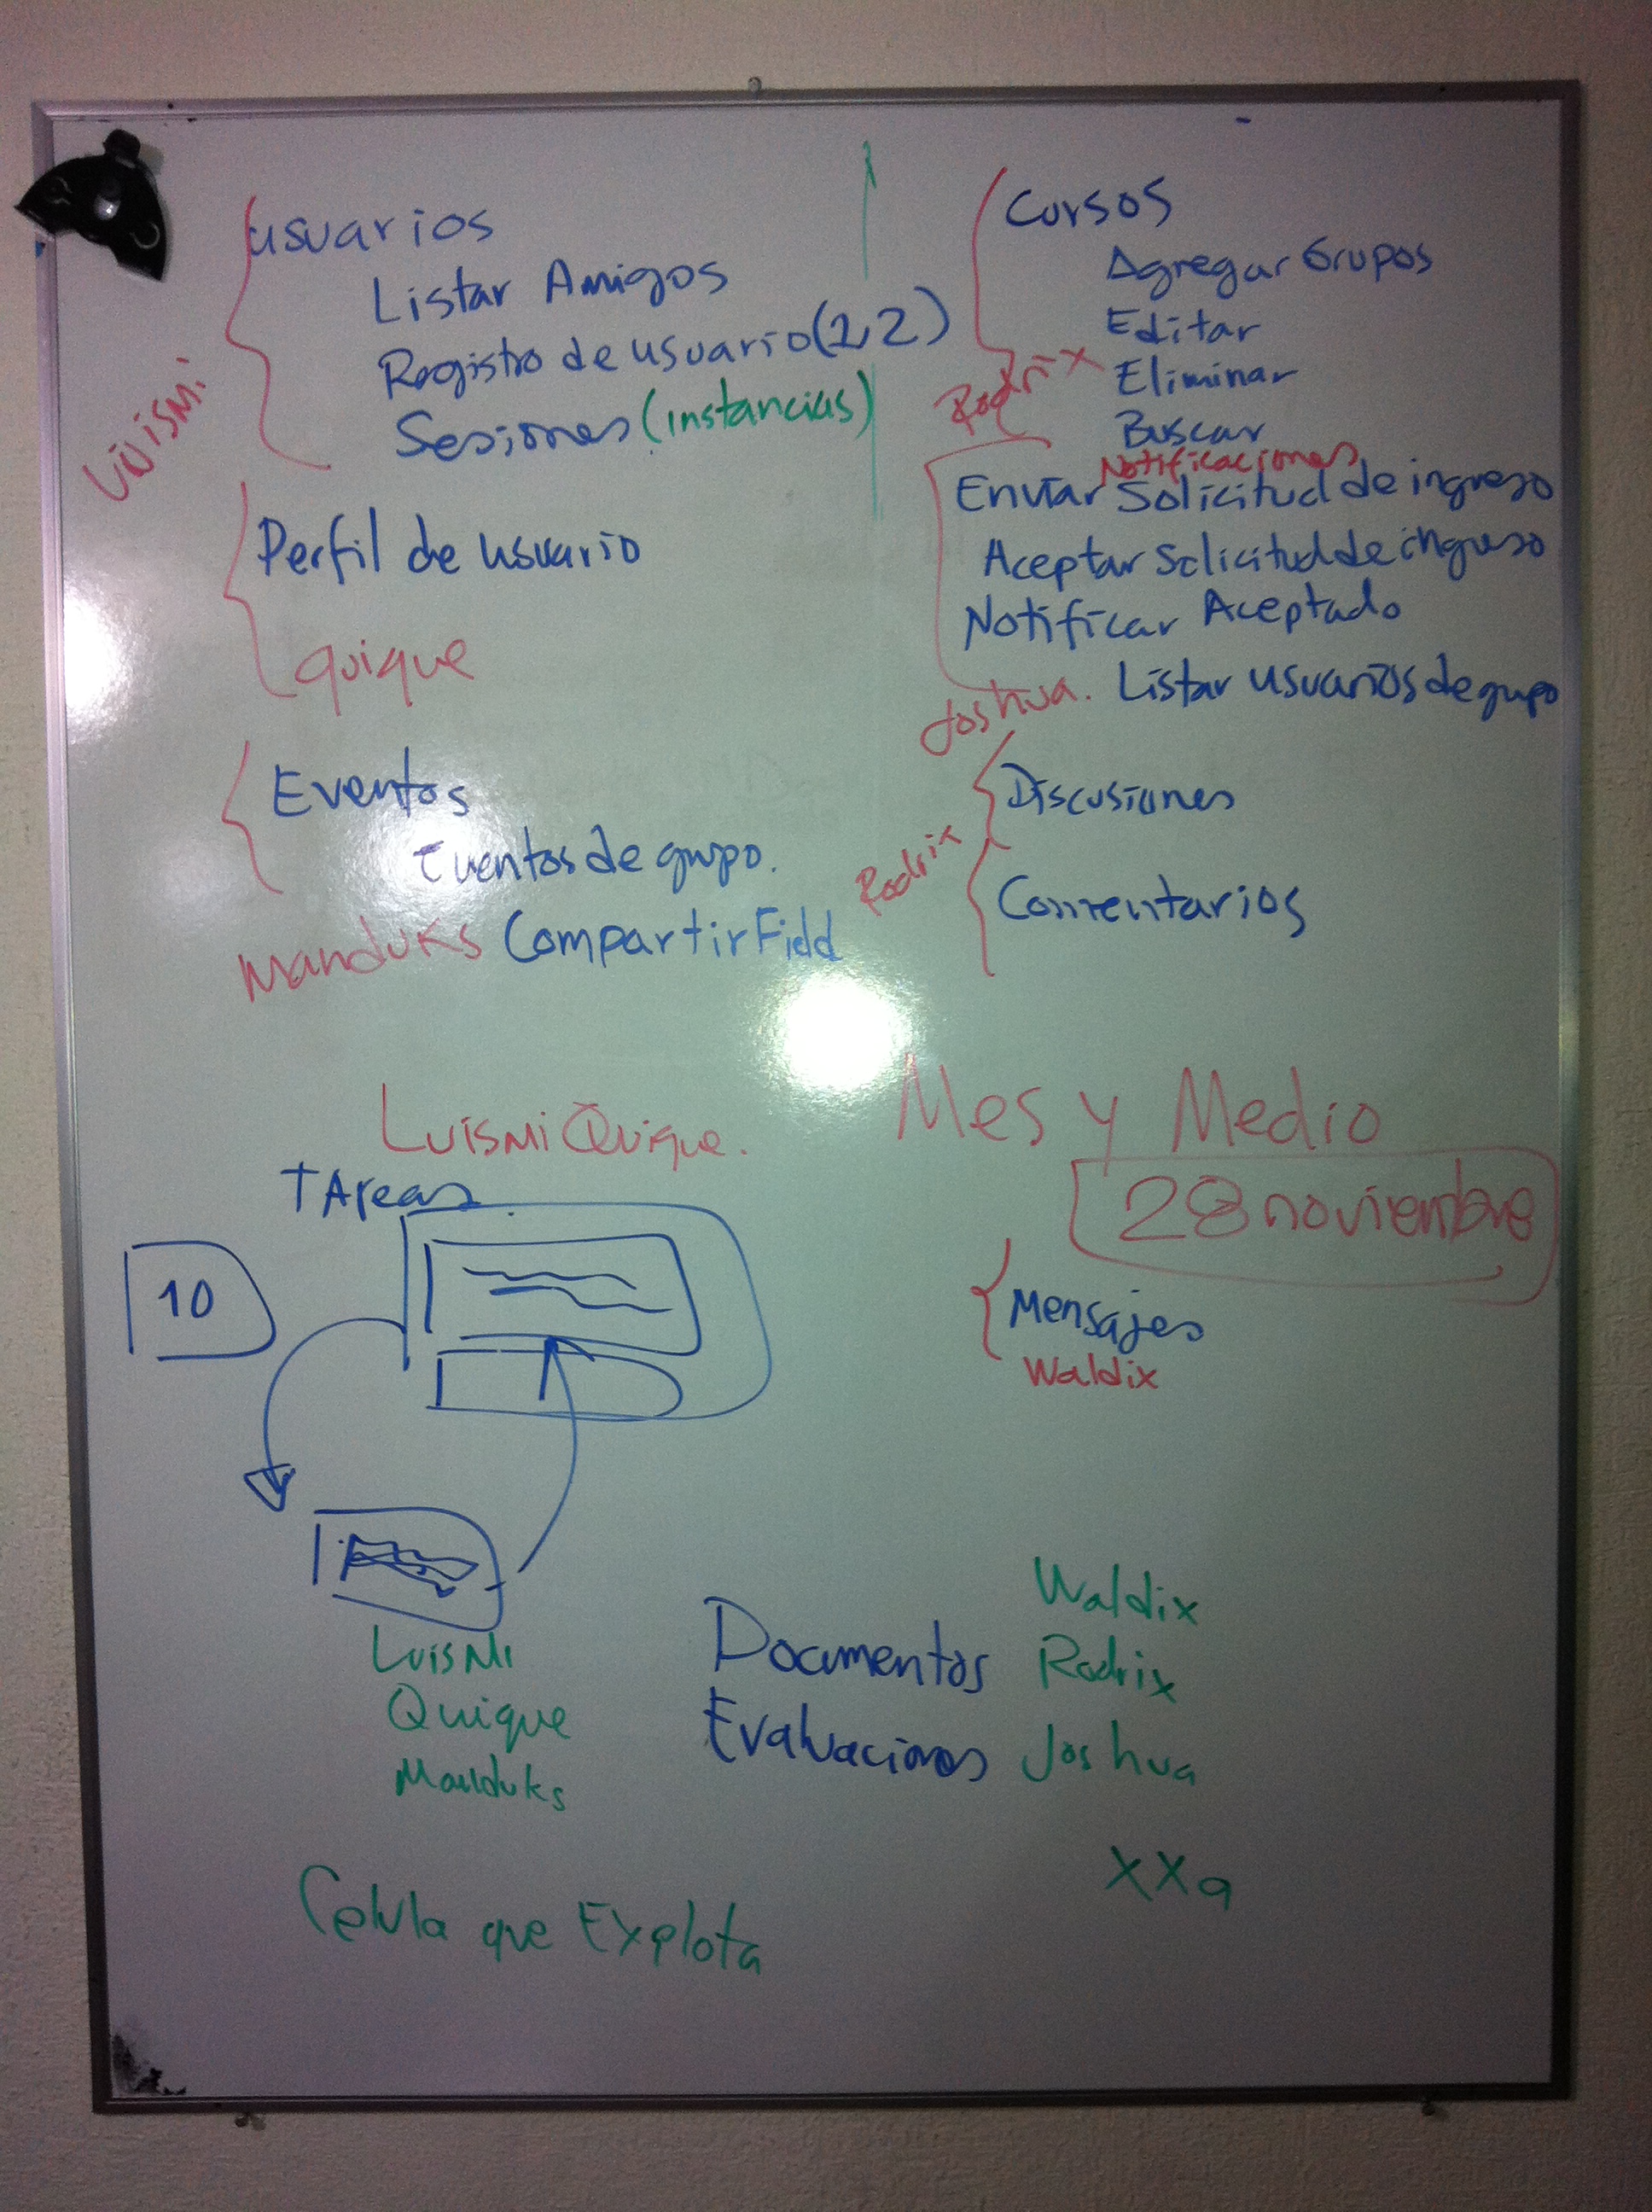 usuarios
Listar Amigos
Registro de usuario (1,2)
Sesiones (instancias)
Luismi
Perfil de usuario
quique
Eventos
Eventos de grupo.
Manduks CompartirField
Cursos
Agregar Grupos
Editar
Eliminar
Buscar
Rodrix
Notificaciones
Enviar Solicitud de ingreso
Aceptar Solicitud de ingreso
Notificar Aceptado
Listar usuarios de grupo
Joshua.
Discusiones
Rodrix
Comentarios
Mes y Medio
28 noviembre
Luismi Quique.
TAreas
10
Mensajes
Waldix
Luismi
Quique
Manduks
Documentos
Evaluaciones
Waldix
Rodrix
Joshua
Celula que Explota
XXq